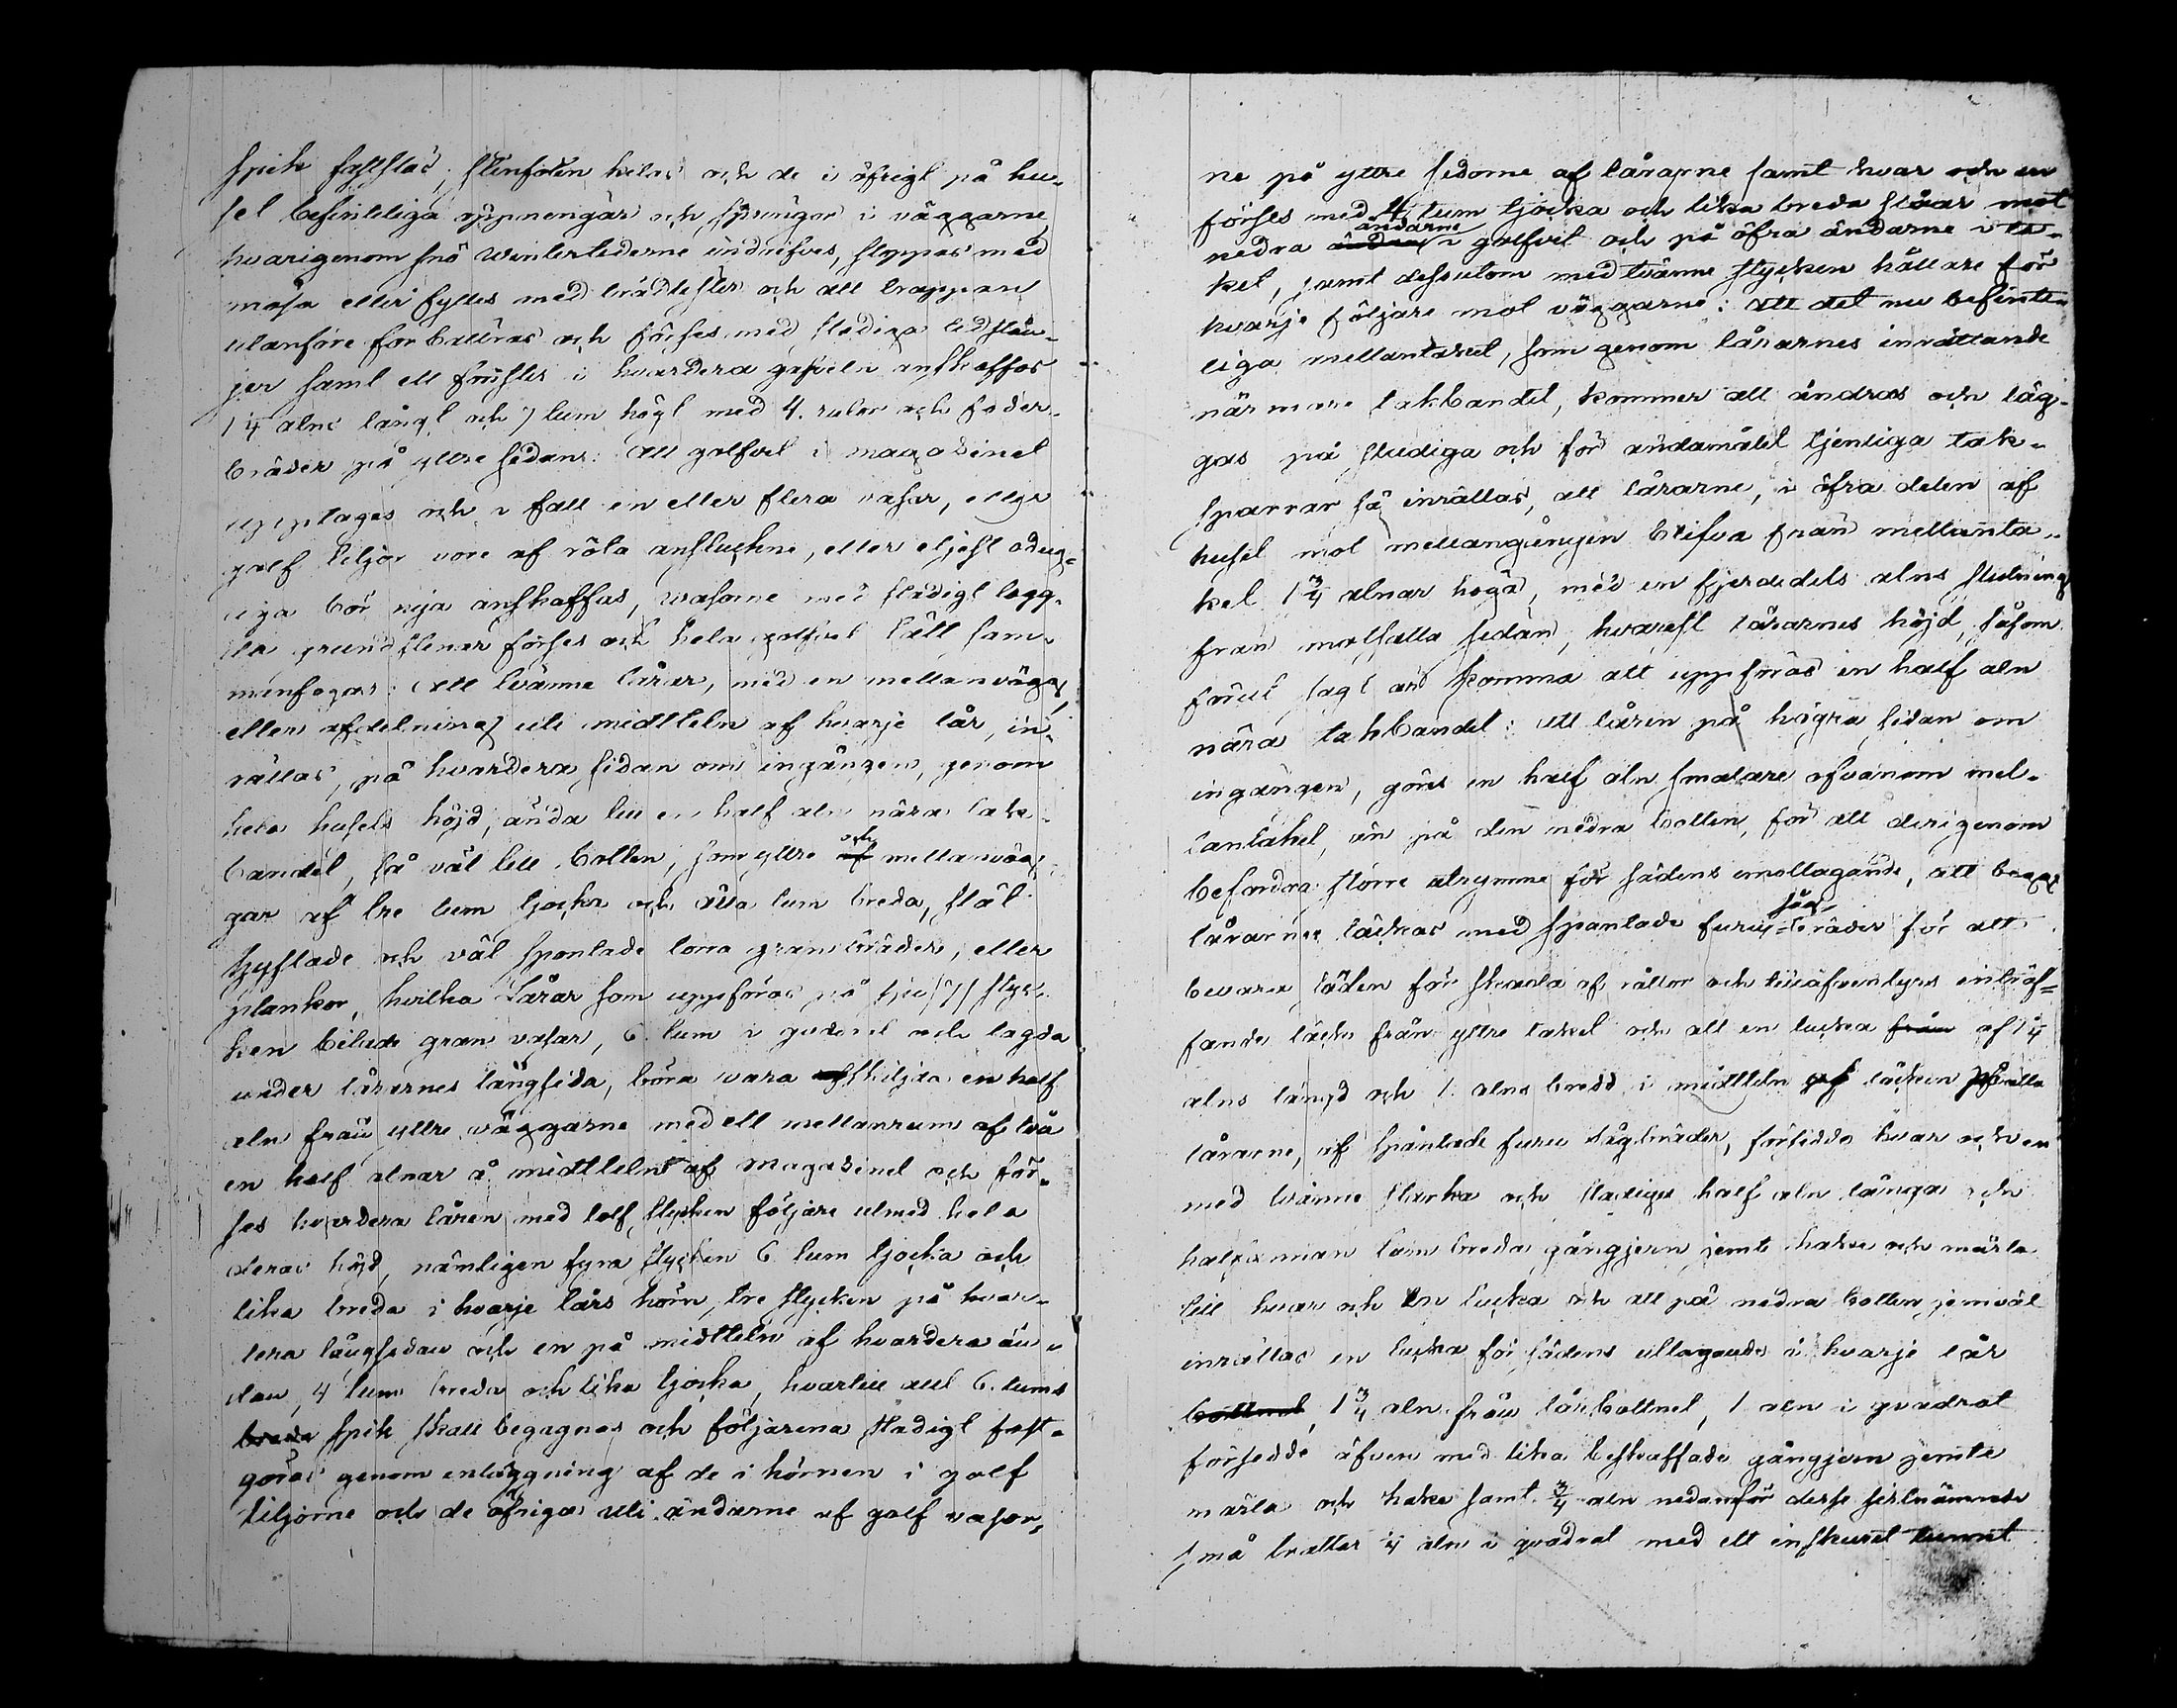 spik fastslås; stenfoten kilas och de i öfrigt på hu-
set befintliga öppningar och springor i väggarne,
hvarigenom snö wintertiderne indrifves, stoppas med
måsa eller fylles med brädlister och att trappan
utanföre förbättras och förses med stadiga ledstän-
jer samt ett fönster i hvardera gafveln anskaffas
1¼ alns långt och 7 tum högt med 4. rutor och foder-
bräder på yttre sidan: Att golfvet i magasinet
upptages och i fall en eller flera vasar, eller
golf tiljor vore af röta anstuckne, eller eljest odug-
liga bör nya anskaffas, wasorne med stadigt lagg-
da grundstenar förses och hela golfvet tätt sam-
manfogas: Att tvänne lårar, med en mellanvägg,
eller afdelning uti midtteln af hvarje lår, in-
rättas, på hvardera sidan om ingången, genom
hela husets höjd, ända till en half aln nära tak-
bandet, så väl till botten, som yttre och mellanväg-
gar af tre tum tjocka och åtta tum breda, slät
hyflade och väl spontade torra granbräder, eller
plankor, hvilka Lårar som uppföras på sju /7/ styc-
ken bilade gran vasar, 6. tum i quadrat och lagda
under lårarnes långsida, böra vara afskiljda en half
aln från yttre väggarne med ett mellanrum af två
en half alnar å midtteln af magasinet och för-
ses hvardera låren med tolf stycken följare utmed hela
deras höjd, nämligen fyra stycken 6 tum tjocka och
lika breda i hvarje lårs hörn, tre stycken på hvar-
dera långsidan och en på midtteln af hvardera än-
dan, 4 tum breda och lika tjocka, hvartill att 6. tums
breda spik skall begagnas och följarena stadigt fast-
göras genom inläggning af de i hörnen i golf
tiljorne och de öfriga uti ändarne af golf vasor-
ne på yttre sidorne af lårarne samt hvar och en
förses med 4 tum tjocka och lika breda slåar mot
nedra ändarne i golfvet och på öfra ändarne i ta-
ket, samt dessutom med tvänne stycken hållare för
hvarje följare mot väggarne: att det nu befint-
liga mellantaket, som genom lårarnes inrättande
närmare takbandet, kommer att ändras och läg-
gas på studiga och för ändamålet tjenliga tak-
sparrar så inrättas, att lårarne, i öfra delen af
huset mot mellangången blifva från mellanta-
ket 1¾ alnar höga, med en fjerdedels alns slutning
från motsatta sidan, hvarest lårarnes höjd, såsom
förut sagt är komma att uppföras en half aln
nära takbandet: att låren på högra sidan om
ingången, göres en half aln smalare ofvanom mel-
lantaket, än på den nedra botten, för att derigenom
befordra större utrymme för sädens emottagande, att begge
lårarne täckas med spontade furu-såg-bräder för att
bevara säden för skada af råttor och tilläfventyrs inträf-
fande läck från yttre taket och att en lucka från af 1¼
alns längd och 1. alns bredd i midtteln af täcken på alla
lårarne, af spåntade furu sågbräder, försedda hvar och en
med tvänne starka och stadiga half aln långa och
halfannan tum breda gångjern jemte hake och märla
till hvar och en lucka och att på nedra botten jemväl
inrättas en lucka för sädens uttagande i hvarje lår
bottnet, 1¾ aln från lårbottnet, 1 aln i quadrat
försedde äfven med lika beskaffade gångjern jemte
märla och hake samt ¾ aln nedanför desse sistnämnde
små brättar ¼ aln i quadrat med ett inskuret tunnt